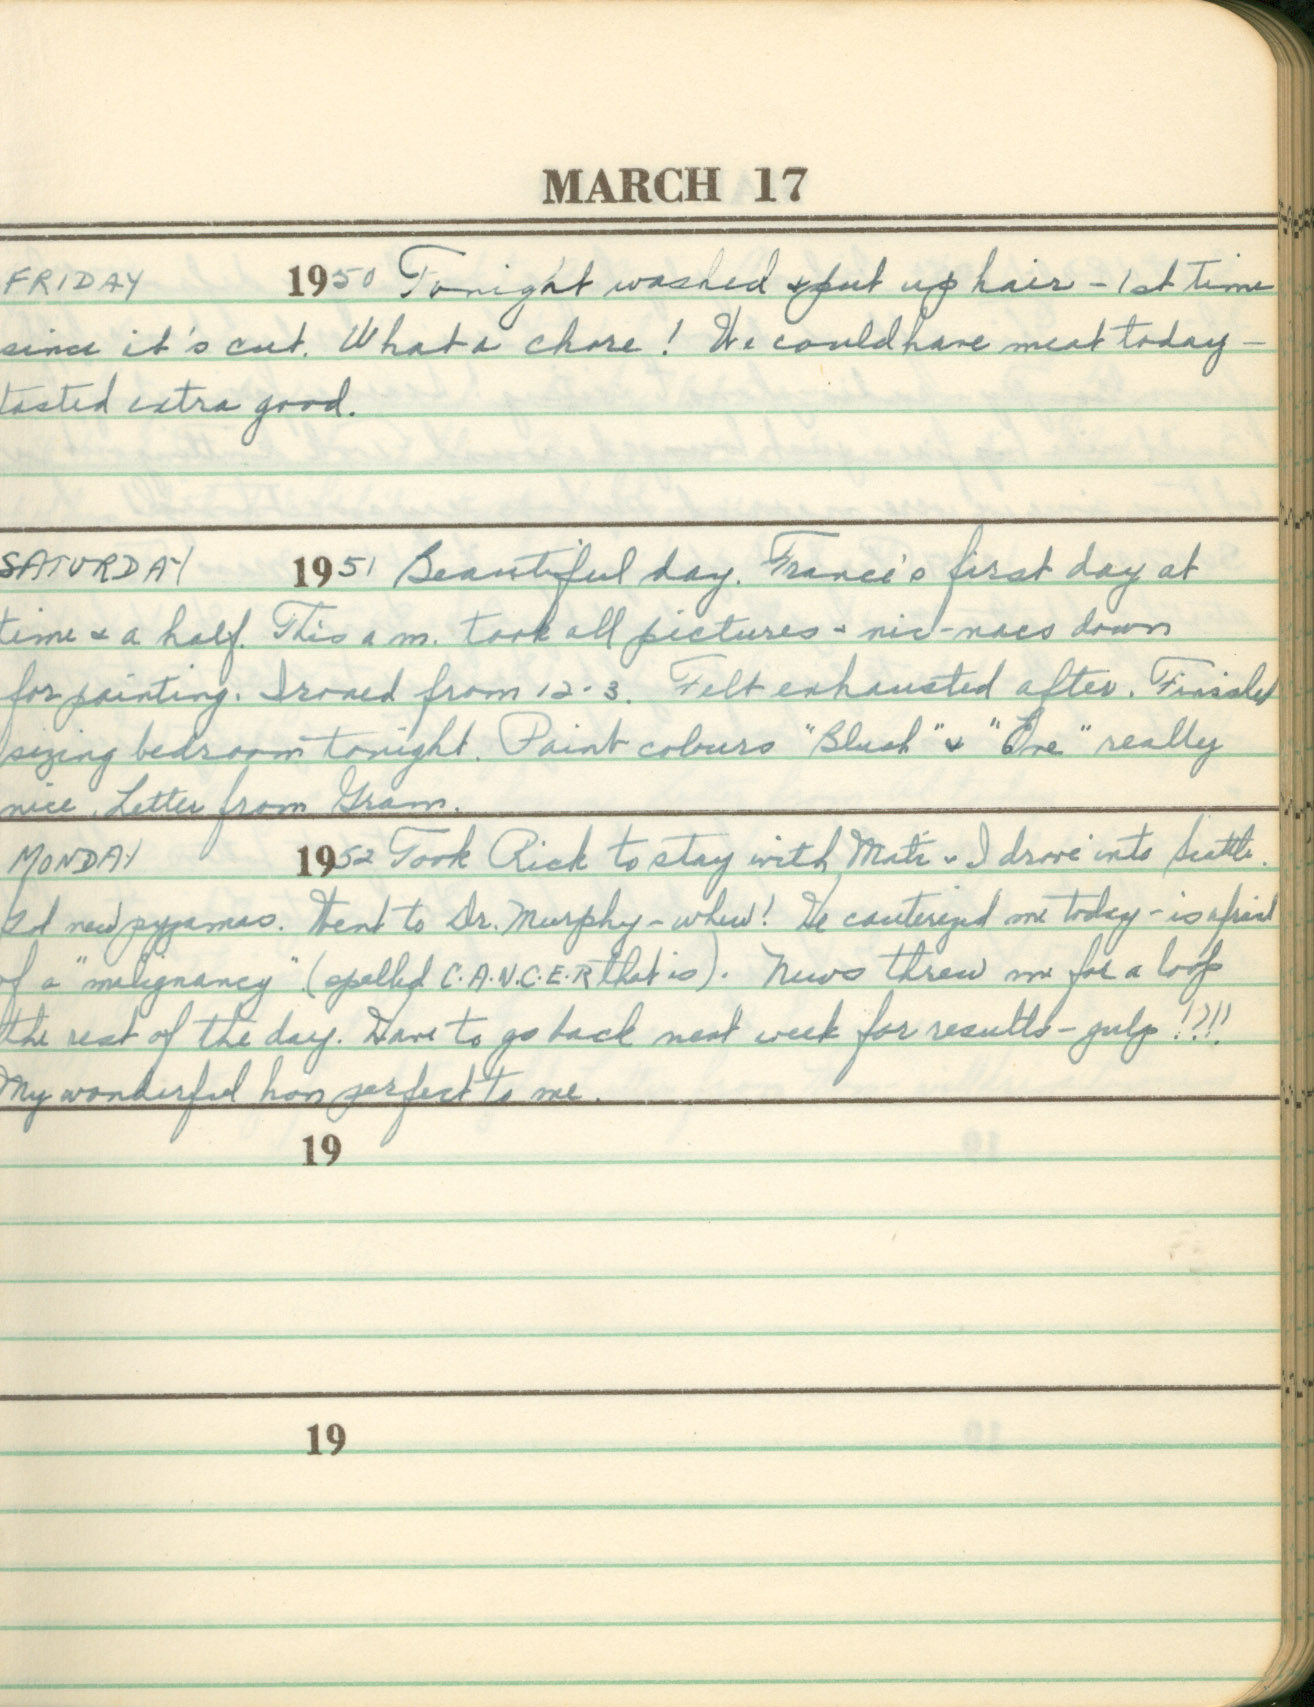 MARCH 17
FRIDAY 1950 Tonight washed & put up hair - 1st time
since it's cut. What a chore! We could have meat today -
tasted extra good.
SATURDAY 1951 Beautiful day. France's first day at
time & a half. This a.m. took all pictures & nic-nacs down
for painting. Ironed from 12-3. Felt exhausted after. Finished
sizing bedroom tonight. Paint colours "Blush" & really
nice. Letter from Gram.
MONDAY 1952 Took Rick to stay with & I drove into Seattle.
new pyjamas. Went to Dr. Murphy - whew! He cauterized me today - is afraid
of a "malignancy" (spelled C.A.N.C.E.R that is). News threw me for a loop
the rest of the day. Have to go back next week for results - gulp !?!!
My wonderful hon perfect to me.
19
19